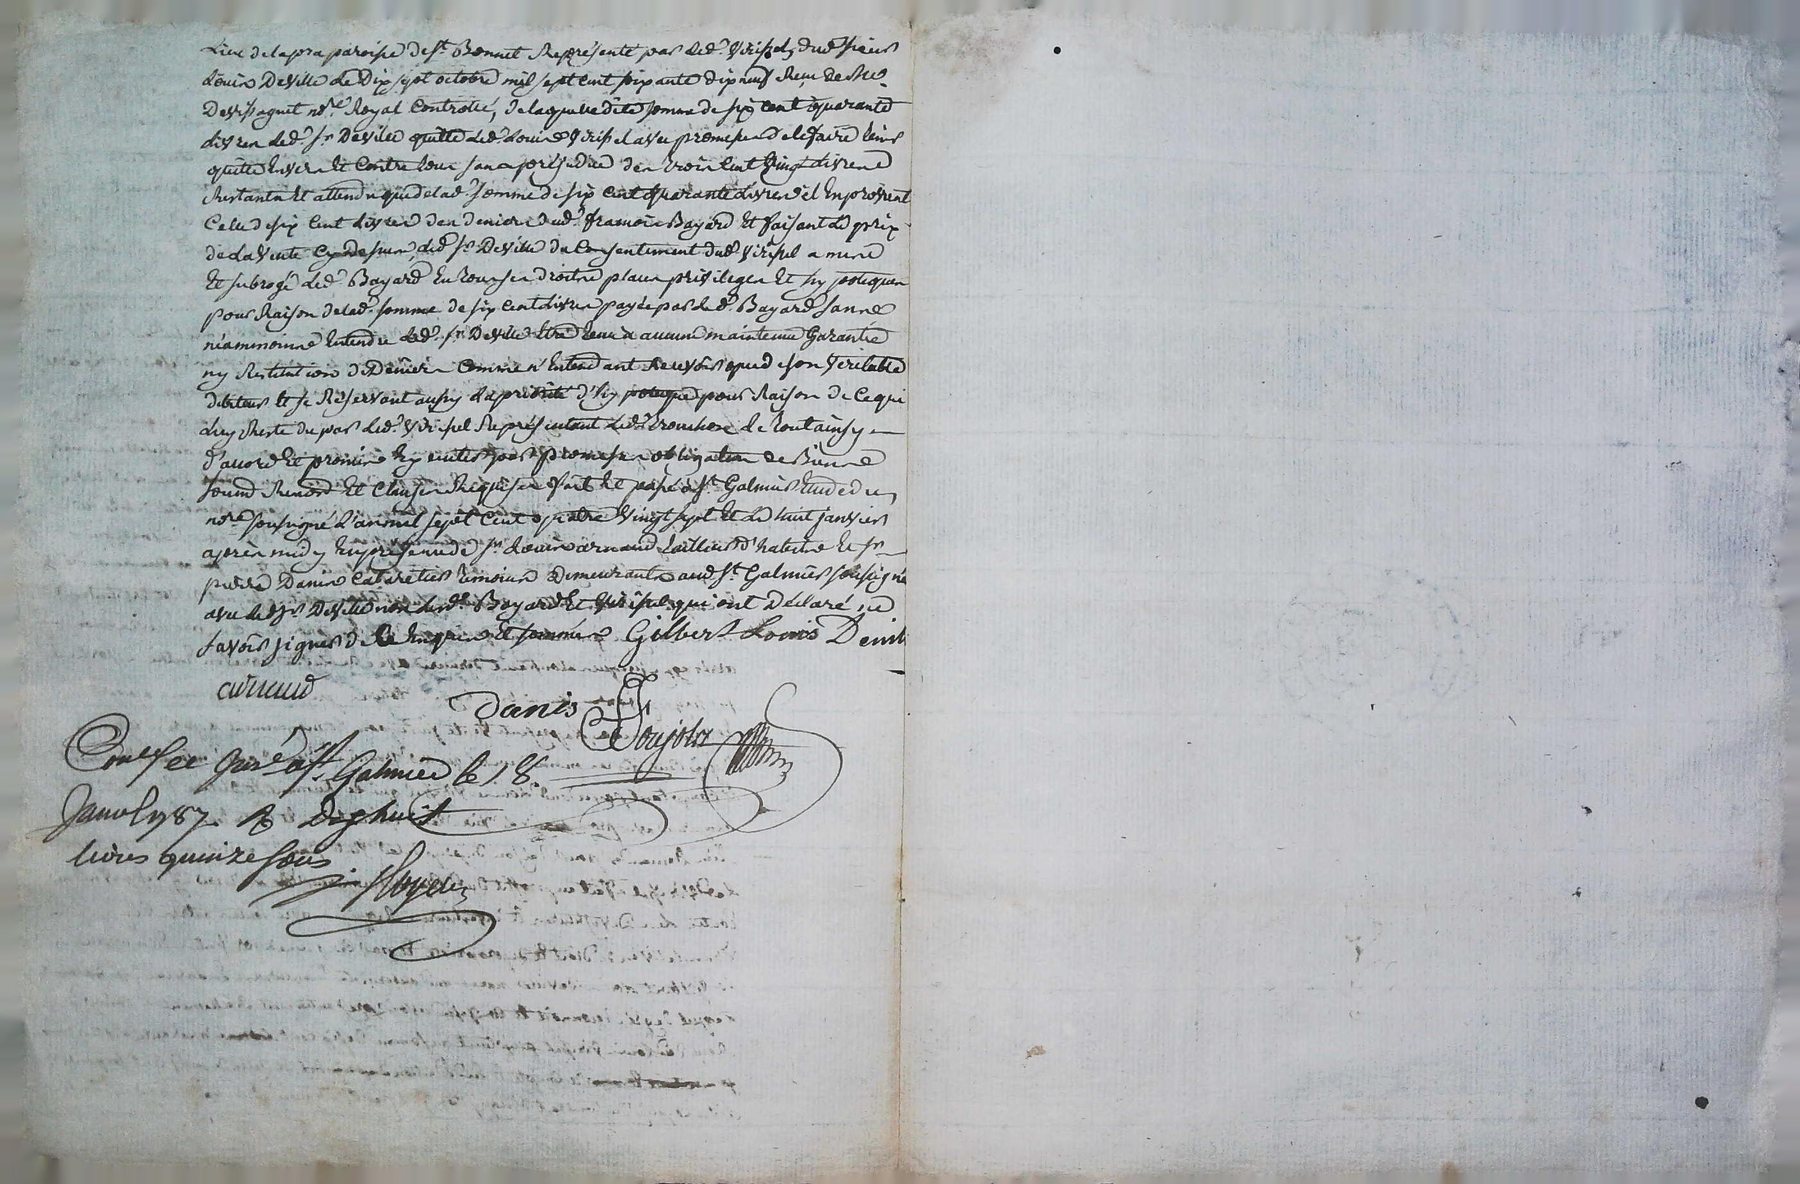 Lieu de la pra paroisse de St Bonnet Représenté par led. Virisel dud. sieur
Louis Deville Le Dix sept octobre mil sept cent soixante dix neuf Reçu de Me
Devisaguet nore Royal Controllé, de laquelle dite somme de six cent quarante
livres led. Sr Deville quitte led. Louis Virisel avec promesse de le faire tenir
quitte Envers Et Contre tous sans préjudice des trois cent vingt livres
Restants Et attendu que de lad. somme de six cent quarante livres il En provient
Celle de six Cent livres des deniers dud. françois Bayard Et faisant le prix
de la vente Cy dessus, led. Sr Deville du Consentement dud. Virisel a mis
Et subrogé led. Bayard En tous ses droits place privileges Et hypoteques
pour Raison de lad. somme de six Cent livres payée par led. Bayard sans
néanmoins Entendre led. Sr Deville Etre tenu a aucune maintenue Garantie
ny Restitution de Deniers Comme n'Entendant Recevoir que de son veritable
debiteur Et se Réservant aussy la priorité d'hypoteque pour Raison de Ce qui
luy Reste du par led. Virisel Représentant led. tronchon de Tout ainsy
d'accord Et promis Exécuter par promesse obligation de Biens
soumis Renoncé Et Clauses Requises fait Et passé a St Galmier Etude du
nore soussigné L'an mil sept Cent quatre vingt sept Et Le huit janvier
après midy En présence de Sr Louis arnaud tailleur d'habits Et Sr
pierre Danis Cabaretier temoins demeurants aud. St Galmier soussignés
avec led. Sr Deville non lesd. Bayard Et Virisel qui ont Déclaré ne
savoir signer de Ce Enquis Et sommés Gilbert Louis Devill
arnaud
Danis Poujola
Conlle et Insé a St Galmier le 18.
Janvr 1787. R dixhuit
livres quinze sous